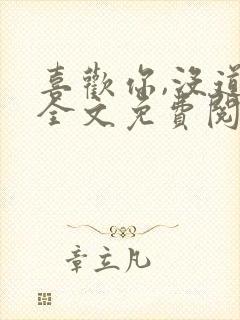 喜歡你,沒道
全文免費閱
章立凡